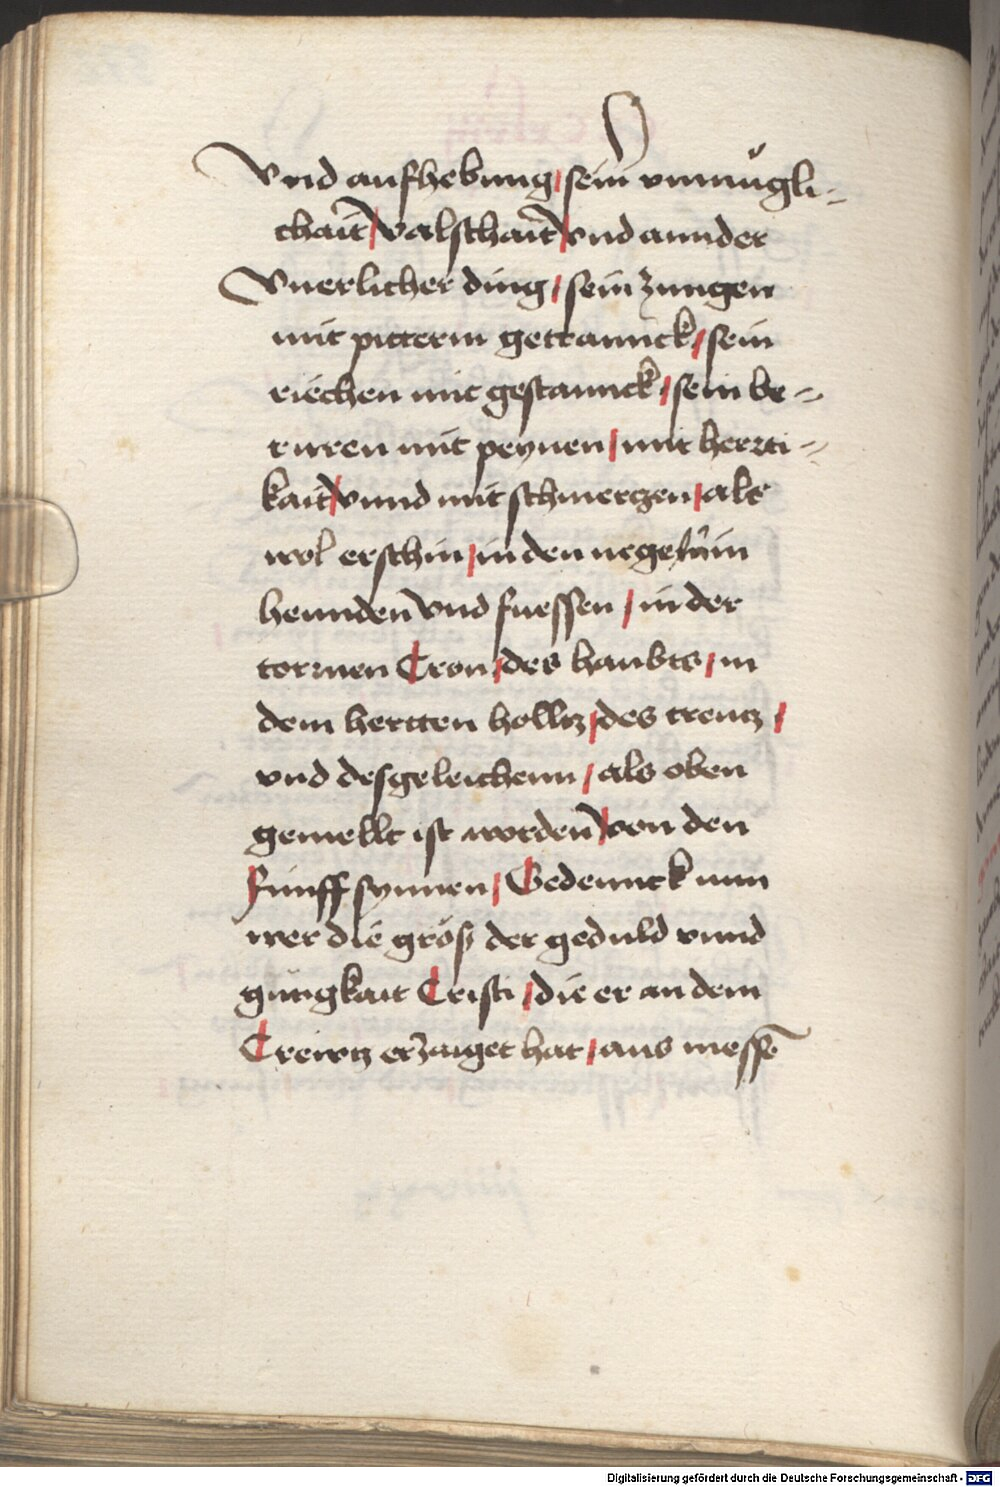 Vnd aufhebung / sein vnmuͤgli-
chait / valschait / vnd annder
Vnerlicher ding / sein zungen
mit pitterm getrannck / sein
riechen mit gestannck / sein be-
ruren mit peynen / mit herrti-
kait / vnnd mit schmerczen / als
wol erschin / in den negel in
hennden vnd fuessen / in der
tornnen Cron / des haubts / in
dem hertten holltz / des creutz /
vnd desgeleichenn / als oben
gemellt ist worden / von den
Funff synnen / Gedennck nun
wer die größ der geduld vnnd
gutigkait Cristi / die er an dem
Crewtz erzaiget hat / aus messen
Digitalisierung gefördert durch die Deutsche Forschungsgemeinschaft - DFG